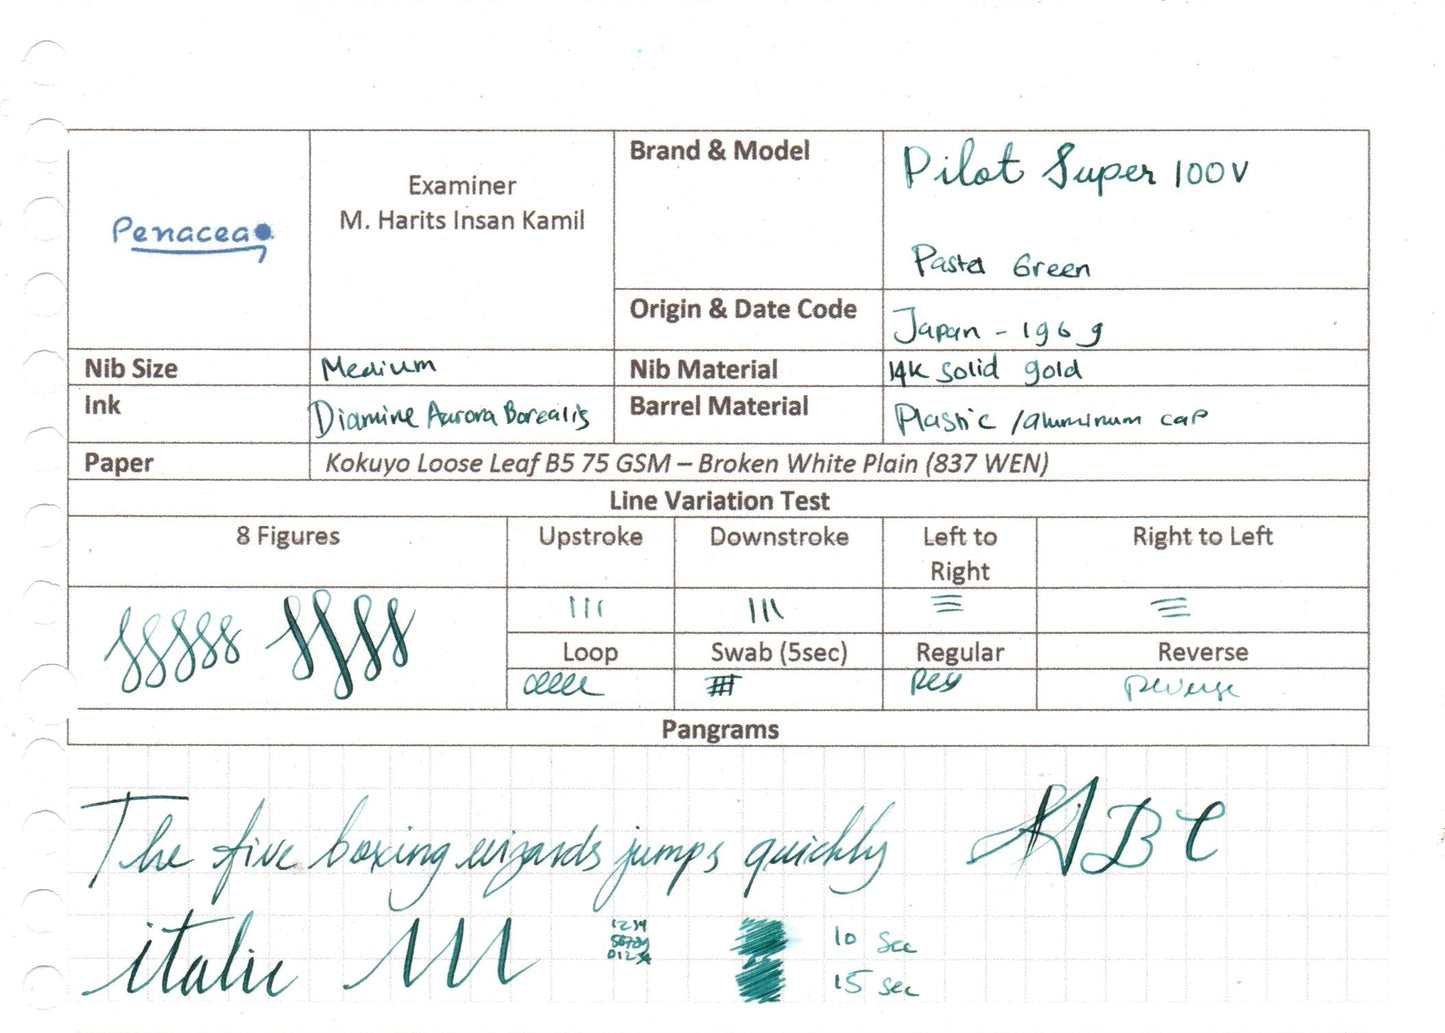 Penacea
Examiner
M. Harits Insan Kamil
Brand & Model
Pilot Super 100V
Pastel Green
Origin & Date Code
Japan - 1969
Nib Size
Medium
Nib Material
14K solid gold
Ink
Diamine Aurora Borealis
Barrel Material
Plastic / aluminum cap
Paper
Kokuyo Loose Leaf B5 75 GSM – Broken White Plain (837 WEN)
Line Variation Test
8 Figures
Upstroke
Downstroke
Left to
Right
Right to Left
Loop
Swab (5sec)
Regular
Reverse
eeeee
Reg
Reverse
Pangrams
The five boxing wizards jumps quickly
A B C
italic
1234
56789
01234
10 sec
15 sec